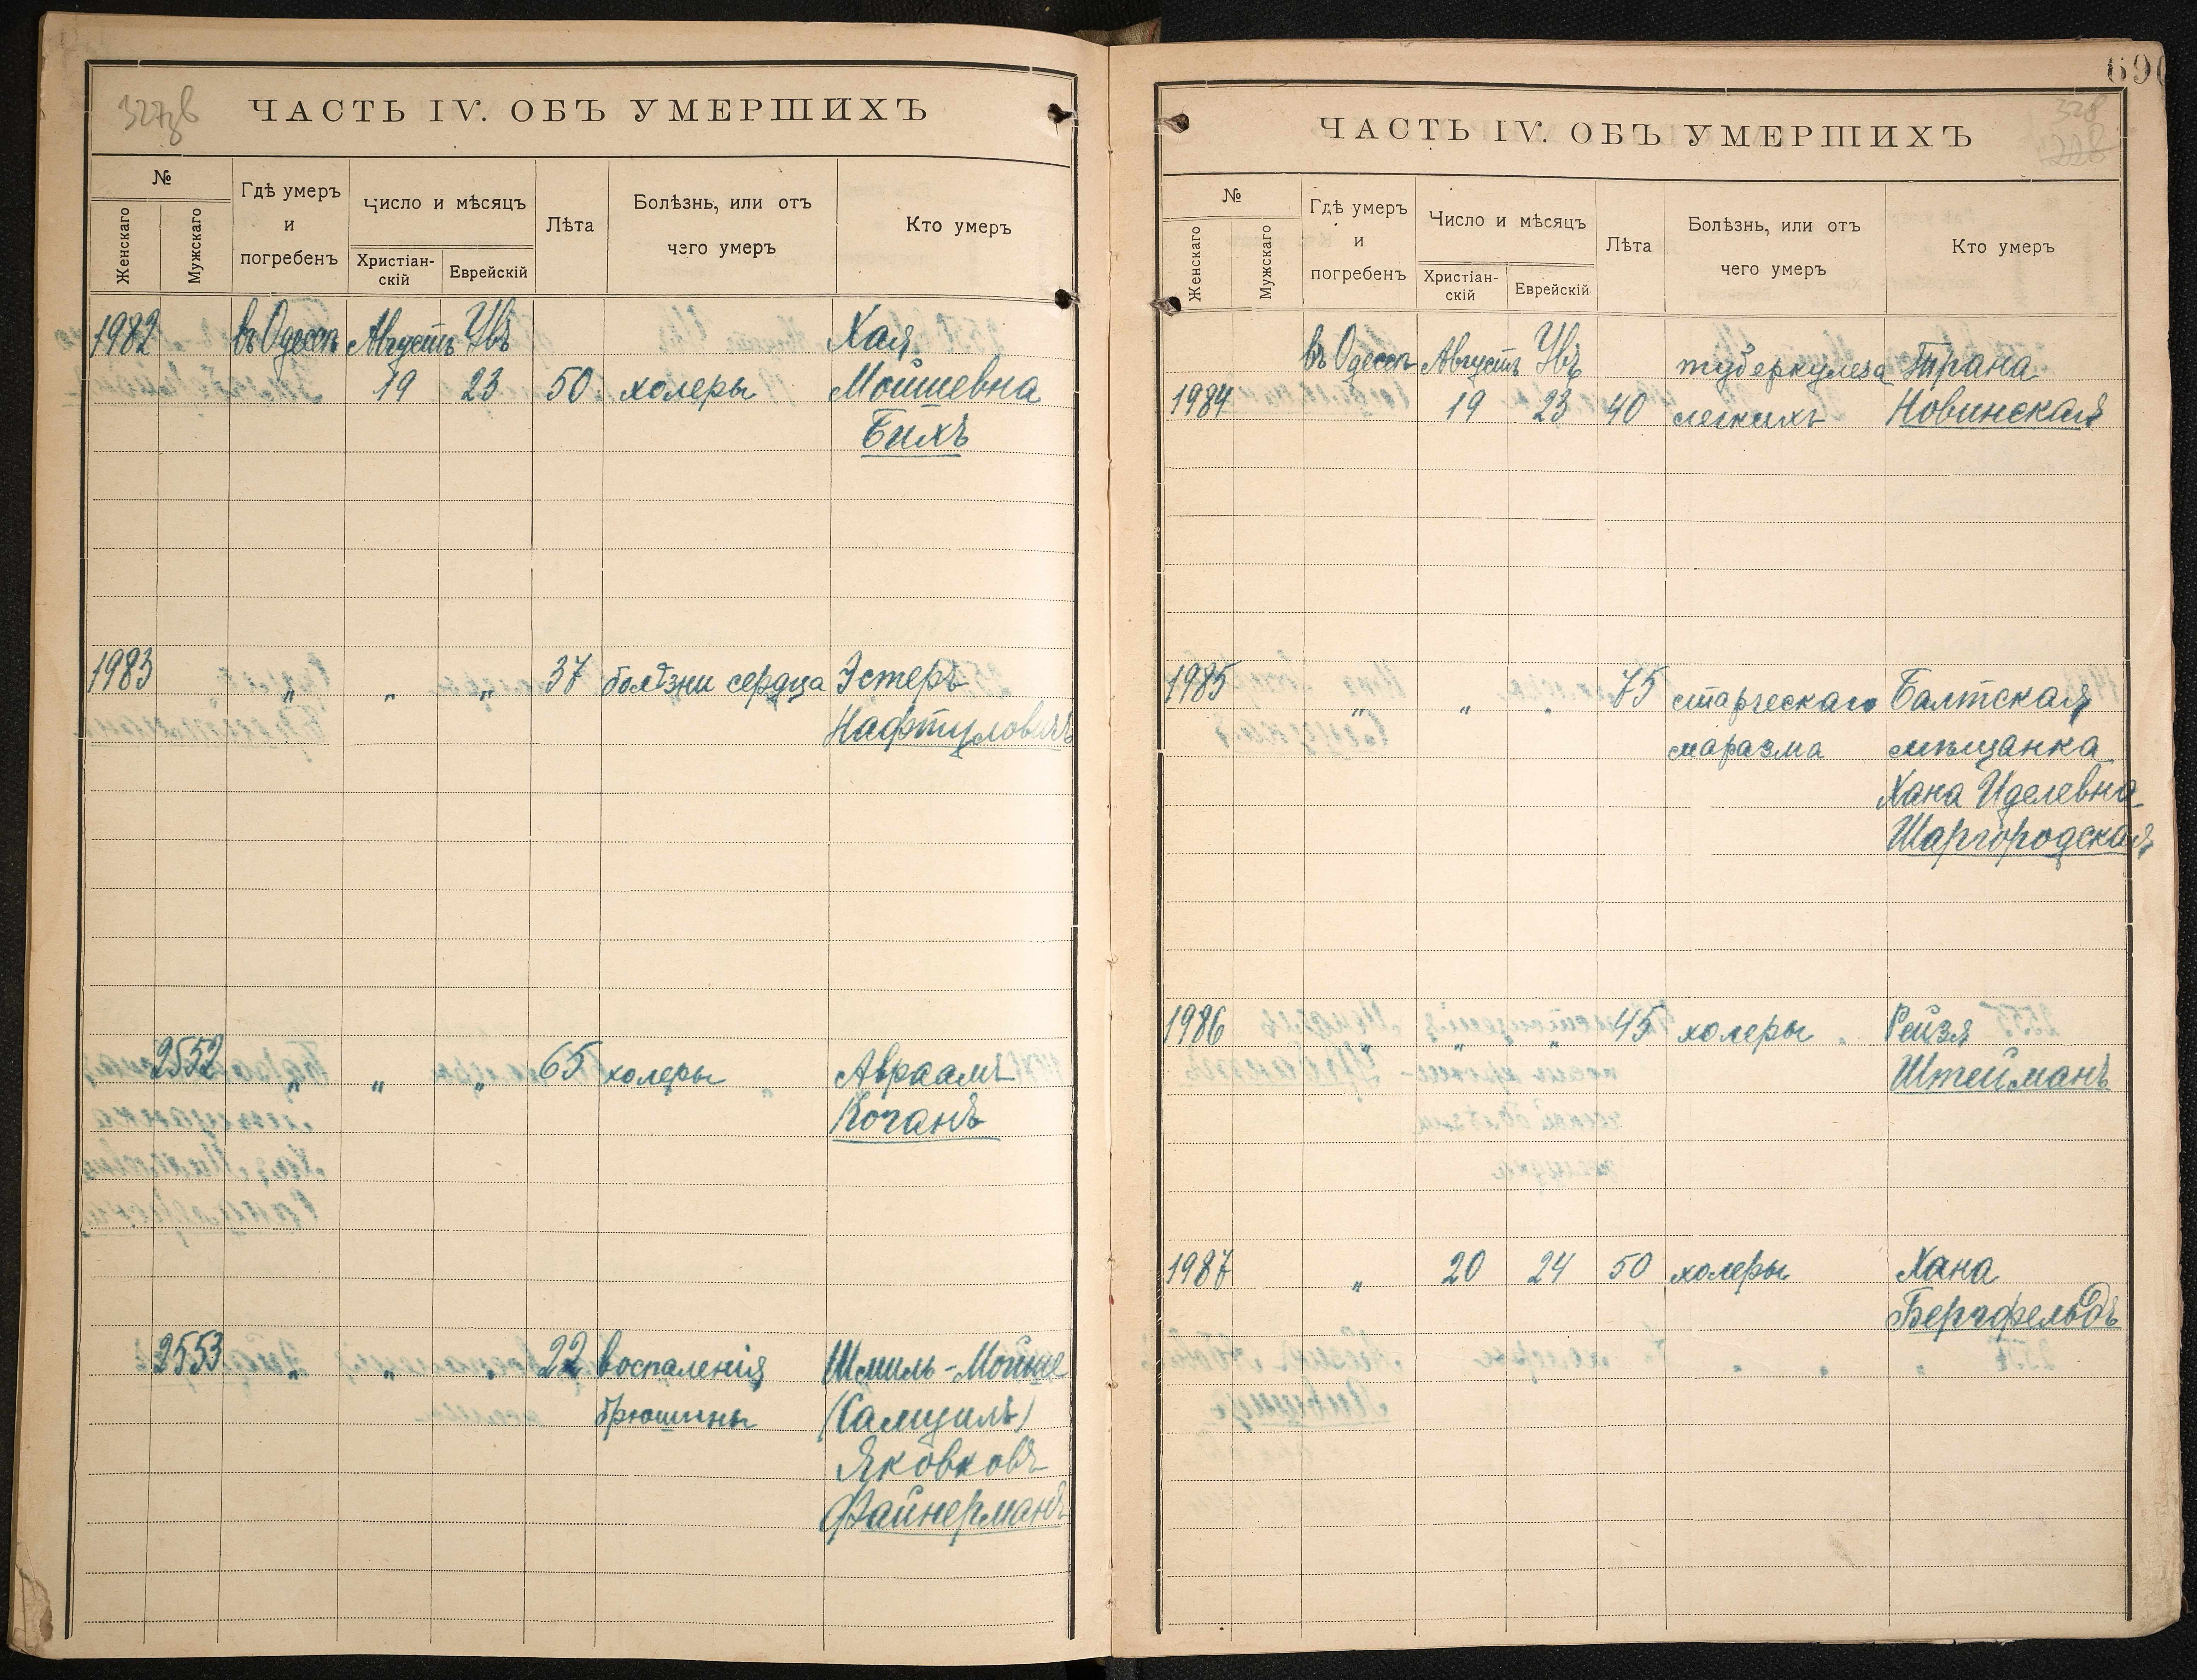 327
ЧАСТЬ IV. ОБЪ УМЕРШИХЪ
№
Женскаго
Мужскаго
Гдѣ умеръ
и
погребенъ
Число и мѣсяцъ
Христіан-
скій
Еврейскій
Лѣта
Болѣзнь, или отъ
чего умеръ
Кто умеръ
1982 въ Одессѣ Августъ Увъ Хая
19 23 50 холеры Мойшевна
Бихъ
1983 „ „ „ 37 болѣзни сердца Эстеръ
Нафтуловичъ
2552 „ „ „ 65 холеры Авраамъ
Коганъ
2553 „ „ „ 22 воспаленія Шмиль-Мойше
брюшины (Самуилъ)
Яковковъ
Файнерманъ
690
328
228
ЧАСТЬ IV. ОБЪ УМЕРШИХЪ
№
Женскаго
Мужскаго
Гдѣ умеръ
и
погребенъ
Число и мѣсяцъ
Христіан-
скій
Еврейскій
Лѣта
Болѣзнь, или отъ
чего умеръ
Кто умеръ
въ Одессѣ Августъ Увъ туберкулеза Трана
1984 19 23 40 легкихъ Новинская
1985 „ „ „ 75 старческаго Балтская
маразма мѣщанка
Хана Иделевна
Шаргородская
1986 „ „ „ 45 холеры Рейзя
Штейманъ
1987 „ 20 24 50 холеры Хана
Бергфельдъ